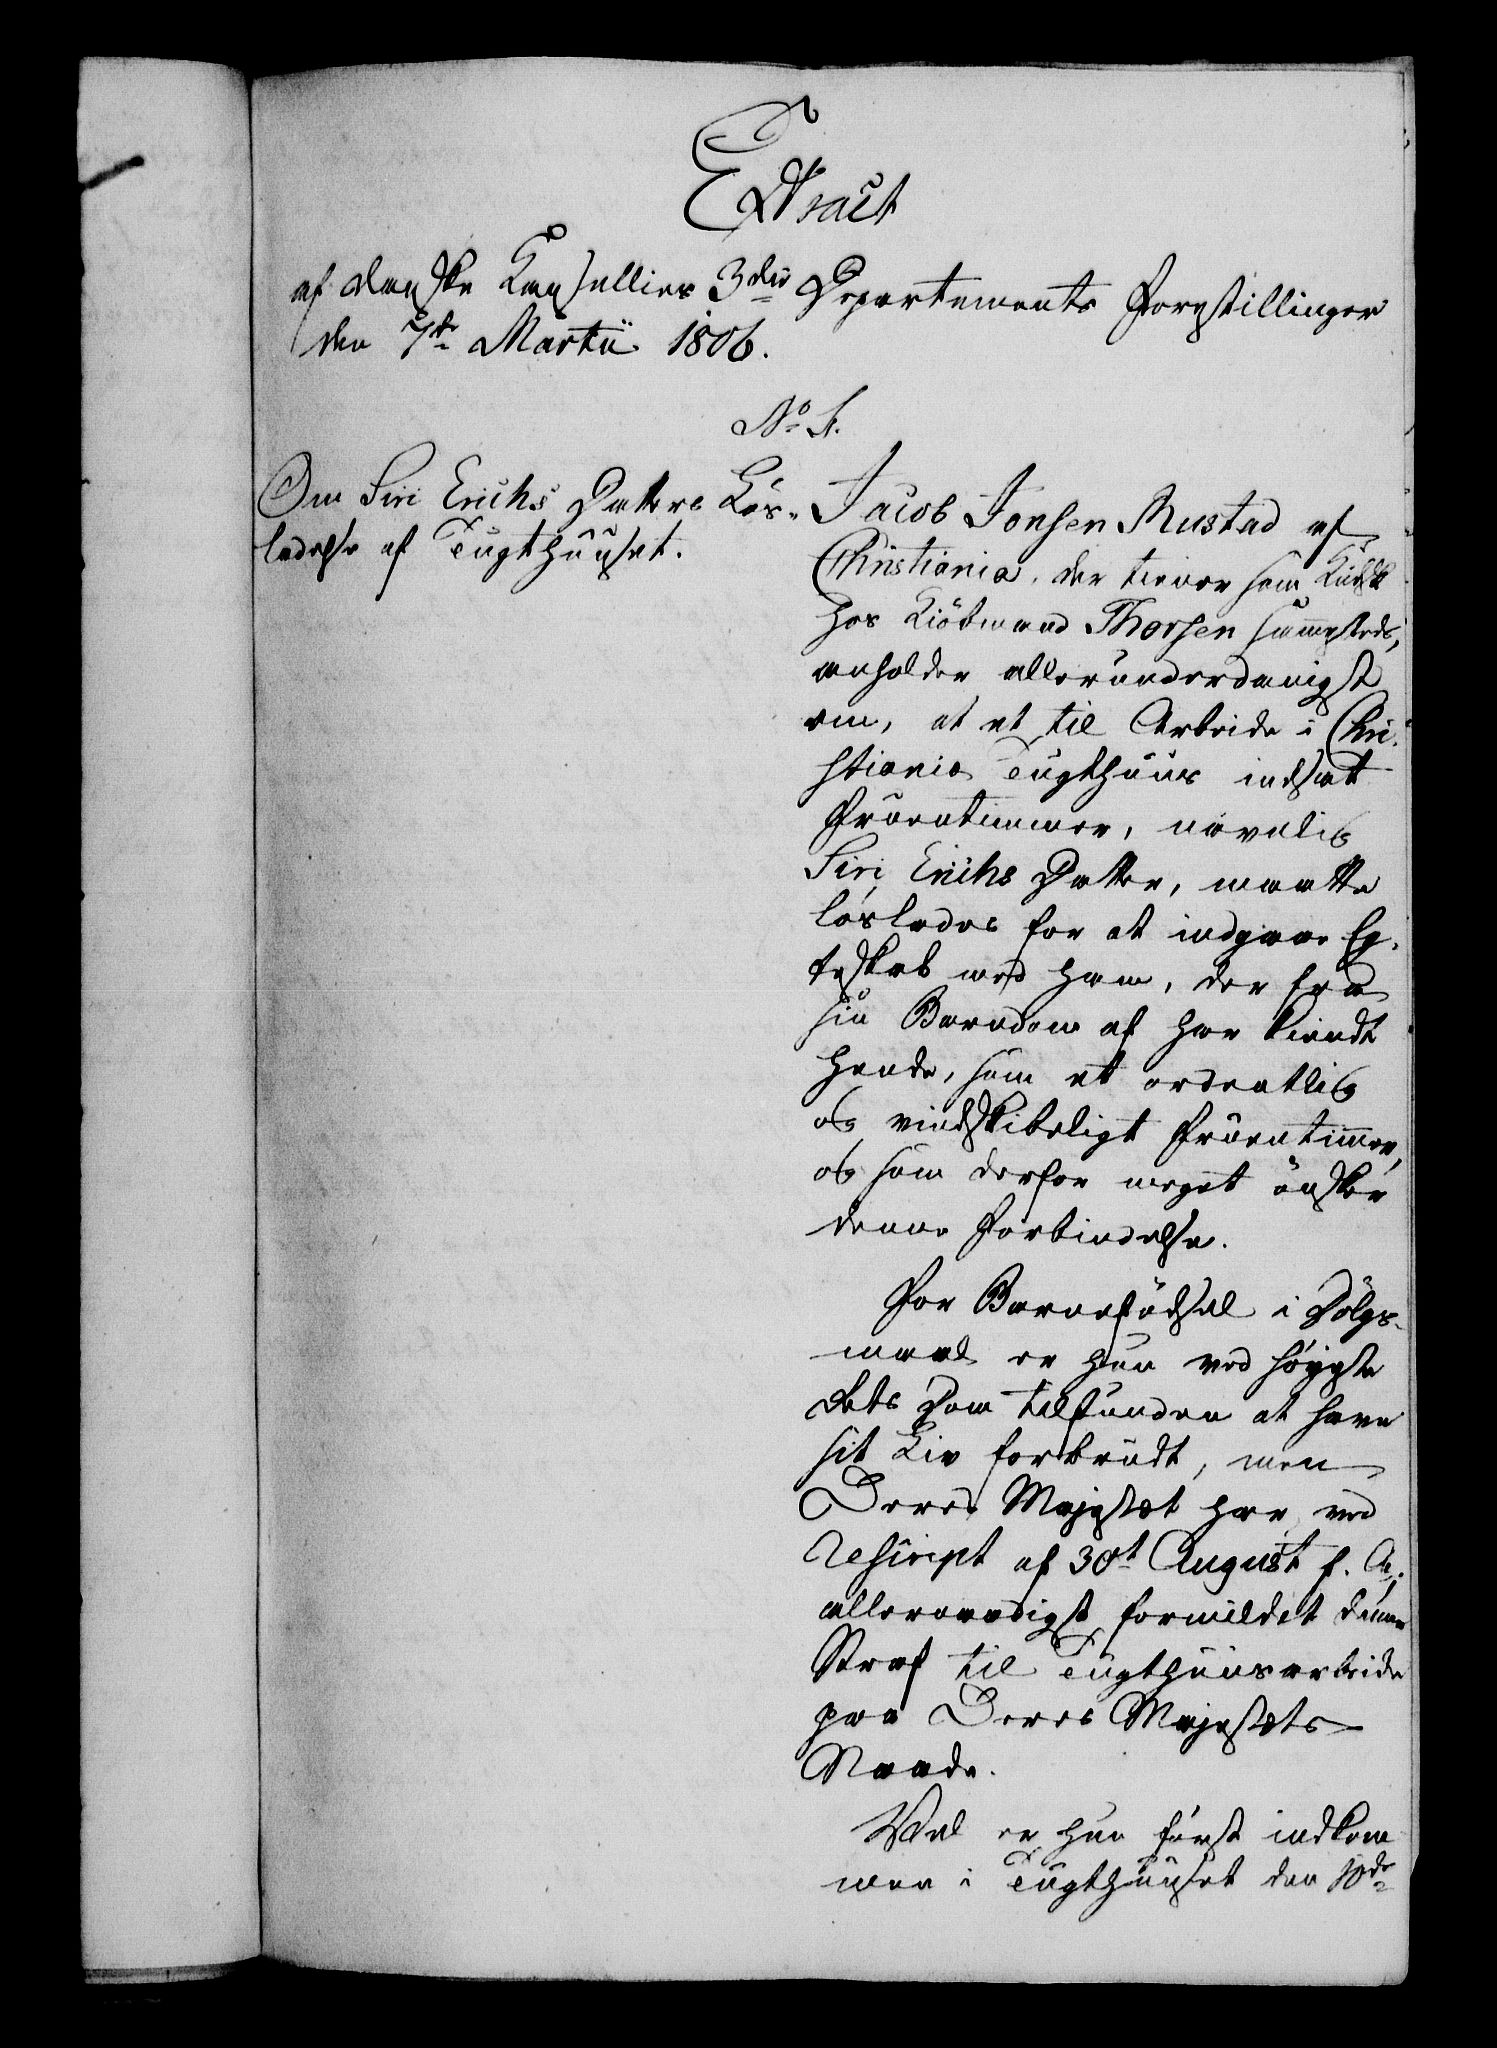 Extract
af danske Cancelliets 3die Departements Forestillinger
den 7de Martii 1806.
No 1.
Om Siri Erichs Datters Løs-
ladelse af Tugthuuset.
Jacob Jonsen Mustad af
Christiania, der tiener som Kudsk
hos Kiöbmand Thorsen sammesteds,
anholder allerunderdanigst
om, at et til Arbeide i Chri-
stiania Tugthuus indsat
Fruentimmer, navnlig
Siri Erichs Datter, maatte
løslades for at indgaae Eg-
teskab med ham, der fra
sin Barndom af har kiendt
hende, som et ordentlig
og vindskibeligt Fruentimmer,
og som derfor meget önsker
denne Forbindelse.
For Barnefödsel i Dölgs-
maal er hun ved Höyeste
Rets Dom tilfunden at have
sit Liv forbrudt, men
Deres Majestet har ved
Rescript af 30t August f. A.
allernaadigst formildet denne
Straf til Tugthuusarbeide
paa Deres Majestets
Naade.
Vel er hun först indkom
men i Tugthuuset den 10de